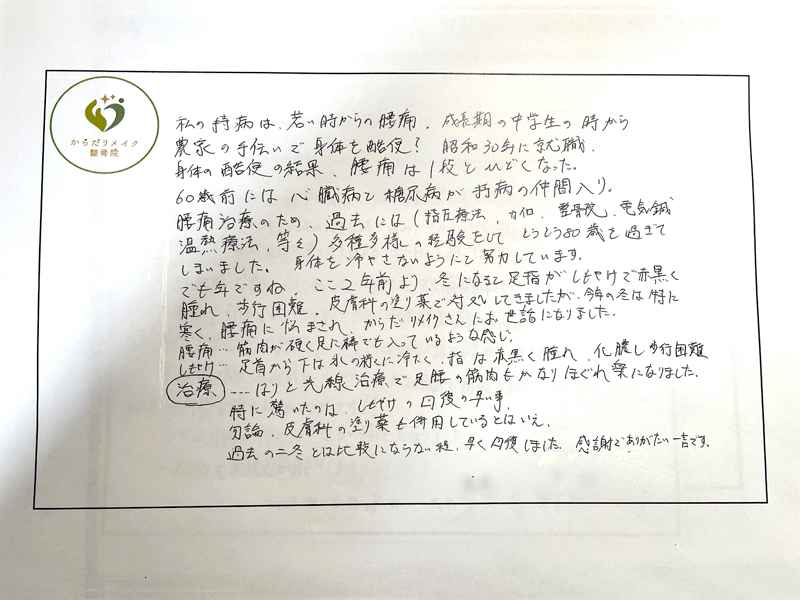 からだリメイク
整骨院
私の持病は、若い時からの腰痛、成長期の中学生の時から
農家の手伝いで身体を酷使? 昭和30年に就職、
身体の酷使の結果、腰痛は1段とひどくなった。
60歳前には心臓病と糖尿病が持病の仲間入り。
腰痛治療のため、過去には(指圧療法、カイロ、整骨院、電気鍼
温熱療法、等々)多種多様の経験をして とうとう80歳を過ぎて
しまいました。 身体を冷やさないようにと努力しています。
でも年ですね、ここ2年前より、冬になると足指がしもやけで赤黒く
腫れ、歩行困難、皮膚科の塗り薬で対処してきましたが、今年の冬は特に
寒く、腰痛に悩まされ、からだリメイクさんにお世話になりました。
腰痛… 筋肉が硬く足に棒でも入っているような感じ
しもやけ… 足首から下は氷の様に冷たく、指は赤黒く腫れ、化膿し歩行困難
治療 ……はりと光線治療で足腰の筋肉もかなりほぐれ楽になりました。
特に驚いたのは、しもやけの回復の早い事、
勿論、皮膚科の塗り薬も併用しているとはいえ、
過去の二冬とは比較にならない程、早く回復しました 感謝でありがたい一言です。